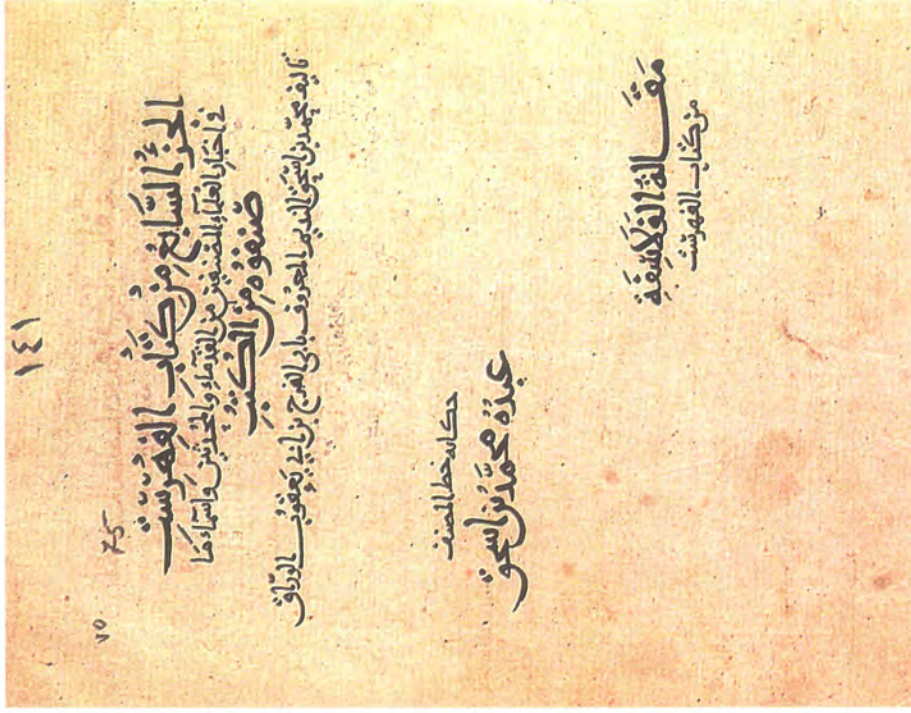 ١٤١
٧٥
75
الجزء السابع من كتاب الفهرست
في اخبار العلماء المصنفين من القدماء والمحدثين واسماء ما
صنفوه من الكتب
تاليف محمد بن اسحق النديم المعروف بابي الفرج بن ابي يعقوب الوراق
حكاية خط المصنف
عبده محمد بن اسحق
مقالة الفلاسفة
من كتاب الفهرست